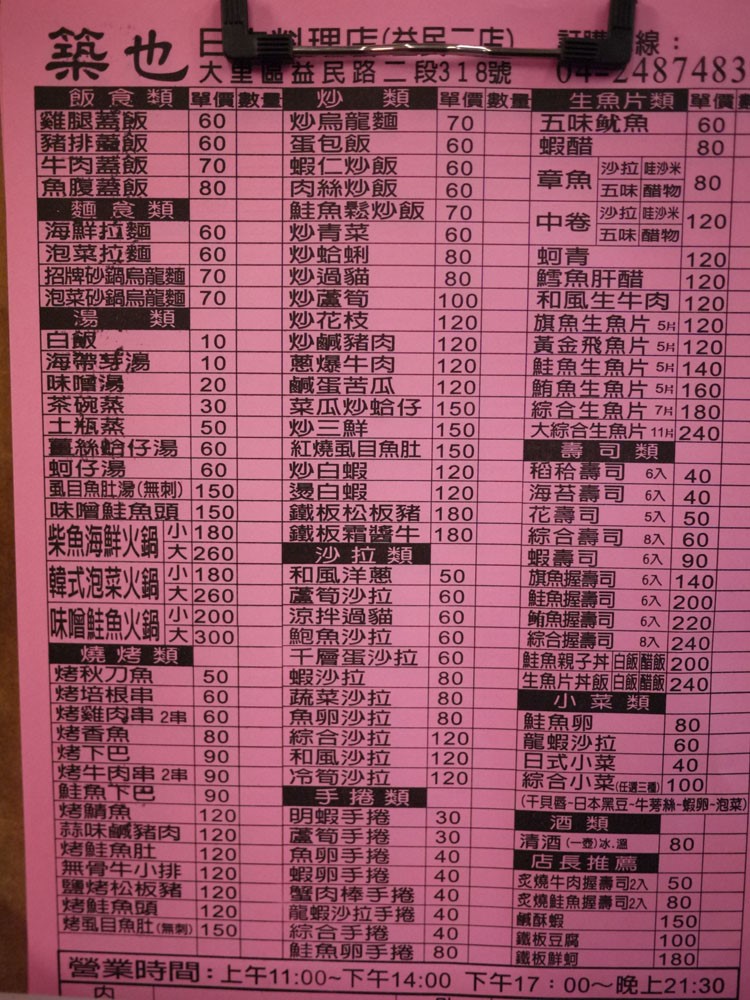 築也 日本料理店(益民二店)
大里區益民路二段318號
線：
04-2487483
飯食類 單價 數量
雞腿蓋飯 60
豬排蓋飯 60
牛肉蓋飯 70
魚腹蓋飯 80
麵食類
海鮮拉麵 60
泡菜拉麵 60
招牌砂鍋烏龍麵 70
泡菜砂鍋烏龍麵 70
湯類
白飯 10
海帶芽湯 10
味噌湯 20
茶碗蒸 30
土瓶蒸 50
薑絲蛤仔湯 60
蚵仔湯 60
虱目魚肚湯(無刺) 150
味噌鮭魚頭 150
柴魚海鮮火鍋 小 180
大 260
韓式泡菜火鍋 小 180
大 260
味噌鮭魚火鍋 小 200
大 300
燒烤類
烤秋刀魚 50
烤培根串 60
烤雞肉串 2串 60
烤香魚 80
烤下巴 90
烤牛肉串 2串 90
鮭魚下巴 90
烤鯖魚 120
蒜味鹹豬肉 120
烤鮭魚肚 120
無骨牛小排 120
鹽烤松板豬 120
烤鮭魚頭 120
烤虱目魚肚(無刺) 150
炒類 單價 數量
炒烏龍麵 70
蛋包飯 60
蝦仁炒飯 60
肉絲炒飯 60
鮭魚鬆炒飯 70
炒青菜 60
炒蛤蜊 80
炒過貓 80
炒蘆筍 100
炒花枝 120
炒鹹豬肉 120
蔥爆牛肉 120
鹹蛋苦瓜 120
菜瓜炒蛤仔 150
炒三鮮 150
紅燒虱目魚肚 150
炒白蝦 120
燙白蝦 120
鐵板松板豬 180
鐵板霜醬牛 180
沙拉類
和風洋蔥 50
蘆筍沙拉 60
涼拌過貓 60
鮑魚沙拉 60
千層蛋沙拉 60
蝦沙拉 80
蔬菜沙拉 80
魚卵沙拉 80
綜合沙拉 120
和風沙拉 120
冷筍沙拉 120
手捲類
明蝦手捲 30
蘆筍手捲 30
魚卵手捲 40
蝦卵手捲 40
蟹肉棒手捲 40
龍蝦沙拉手捲 40
綜合手捲 40
鮭魚卵手捲 80
生魚片類 單價
五味魷魚 60
蝦醋 80
章魚 沙拉 哇沙米 80
五味 醋物
中卷 沙拉 哇沙米 120
五味 醋物
蚵青 120
鱈魚肝醋 120
和風生牛肉 120
旗魚生魚片 5片 120
黃金飛魚片 5片 120
鮭魚生魚片 5片 140
鮪魚生魚片 5片 160
綜合生魚片 7片 180
大綜合生魚片 11片 240
壽司類
稻秴壽司 6入 40
海苔壽司 6入 40
花壽司 5入 50
綜合壽司 8入 60
蝦壽司 6入 90
旗魚握壽司 6入 140
鮭魚握壽司 6入 200
鮪魚握壽司 6入 220
綜合握壽司 8入 240
鮭魚親子丼 白飯 醋飯 200
生魚片丼飯 白飯 醋飯 240
小菜類
鮭魚卵 80
龍蝦沙拉 60
日式小菜 40
綜合小菜(任選三種) 100
(干貝唇-日本黑豆-牛蒡絲-蝦卵-泡菜)
酒類
清酒(一壺)冰.溫 80
店長推薦
炙燒牛肉握壽司2入 50
炙燒鮭魚握壽司2入 80
鹹酥蝦 150
鐵板豆腐 100
鐵板鮮蚵 180
營業時間：上午11:00~下午14:00 下午17：00~晚上21:30